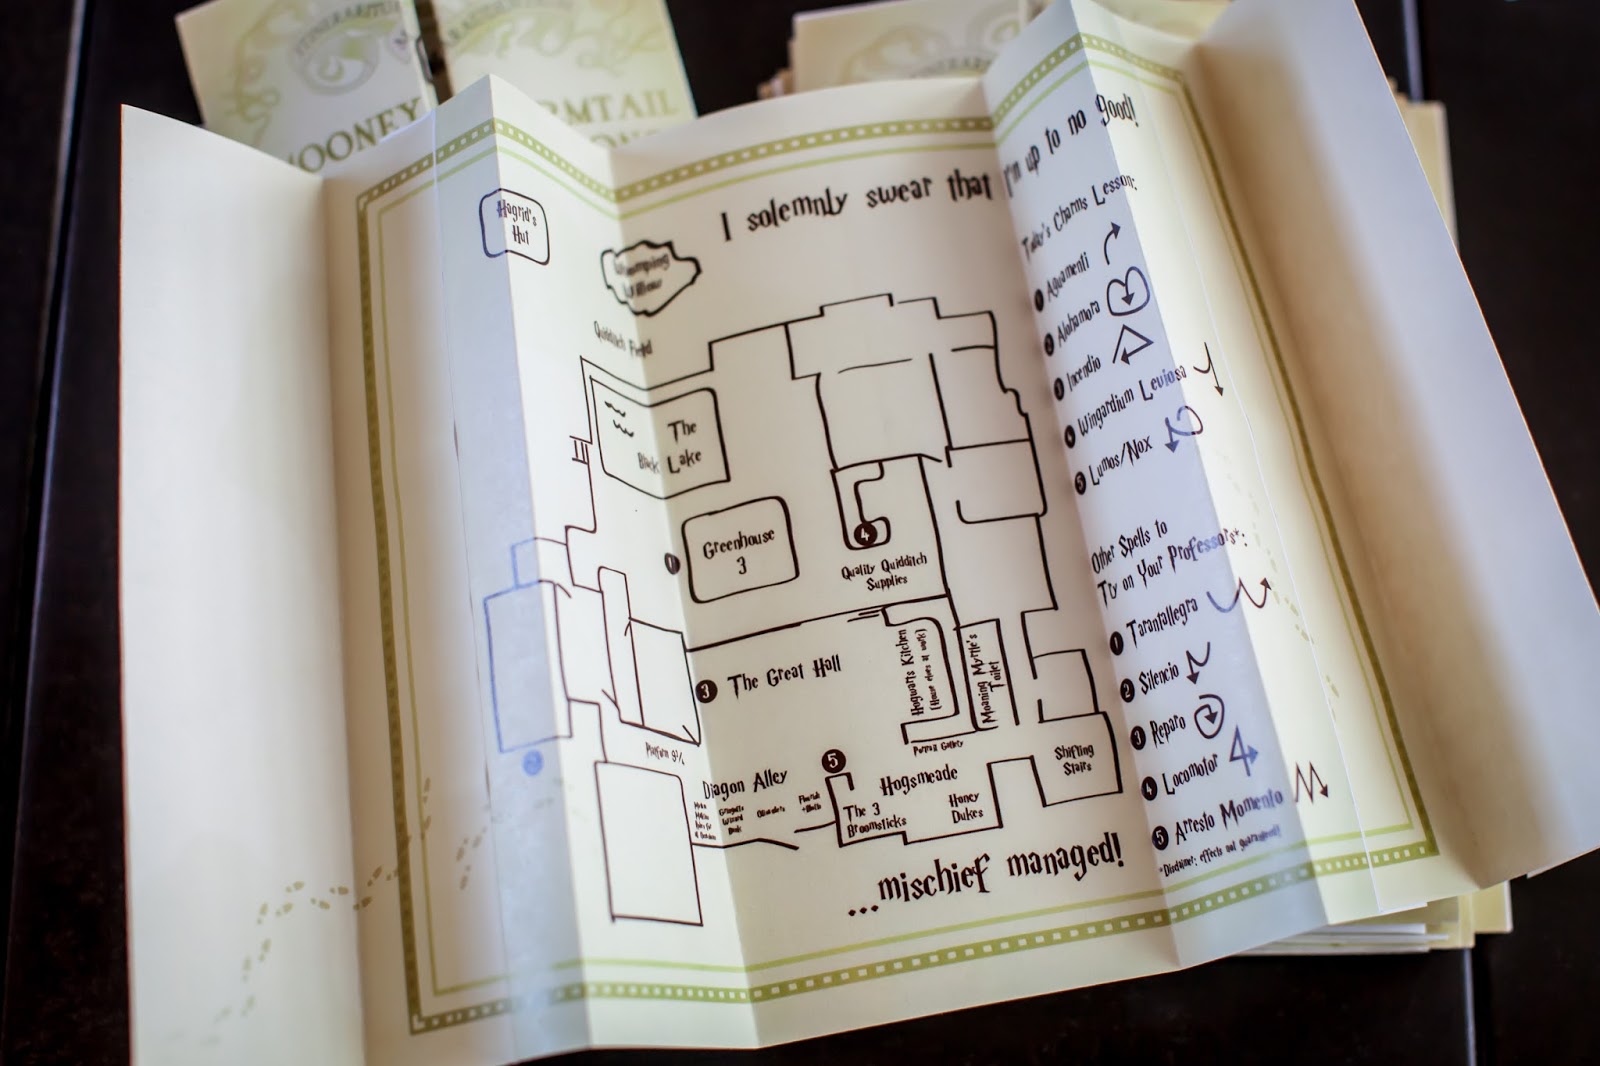 MOONEY
I solemnly swear that I'm up to no good!
Hagrid's
Hut
Whomping
Willow
Quidditch Field
The
Black Lake
1
Greenhouse
3
4
Quality Quidditch
Supplies
3 The Great Hall
Hogwarts Kitchen
(House elves at work)
Moaning Myrtle's
Toilet
Portrait Gallery
Shifting
Stairs
Platform 9¾
2
Diagon Alley
Ollivanders
5
Hogsmeade
The 3
Broomsticks
Honey
Dukes
...mischief managed!
Today's Charms Lesson:
1 Aguamenti
2 Alohamora
3 Incendio
4 Wingardium Leviosa
5 Lumos/Nox
Other Spells to
Try on Your Professors*:
1 Tarantallegra
2 Silencio
3 Reparo
4 Locomotor
5 Arresto Momento
*Disclaimer: effects not guaranteed!